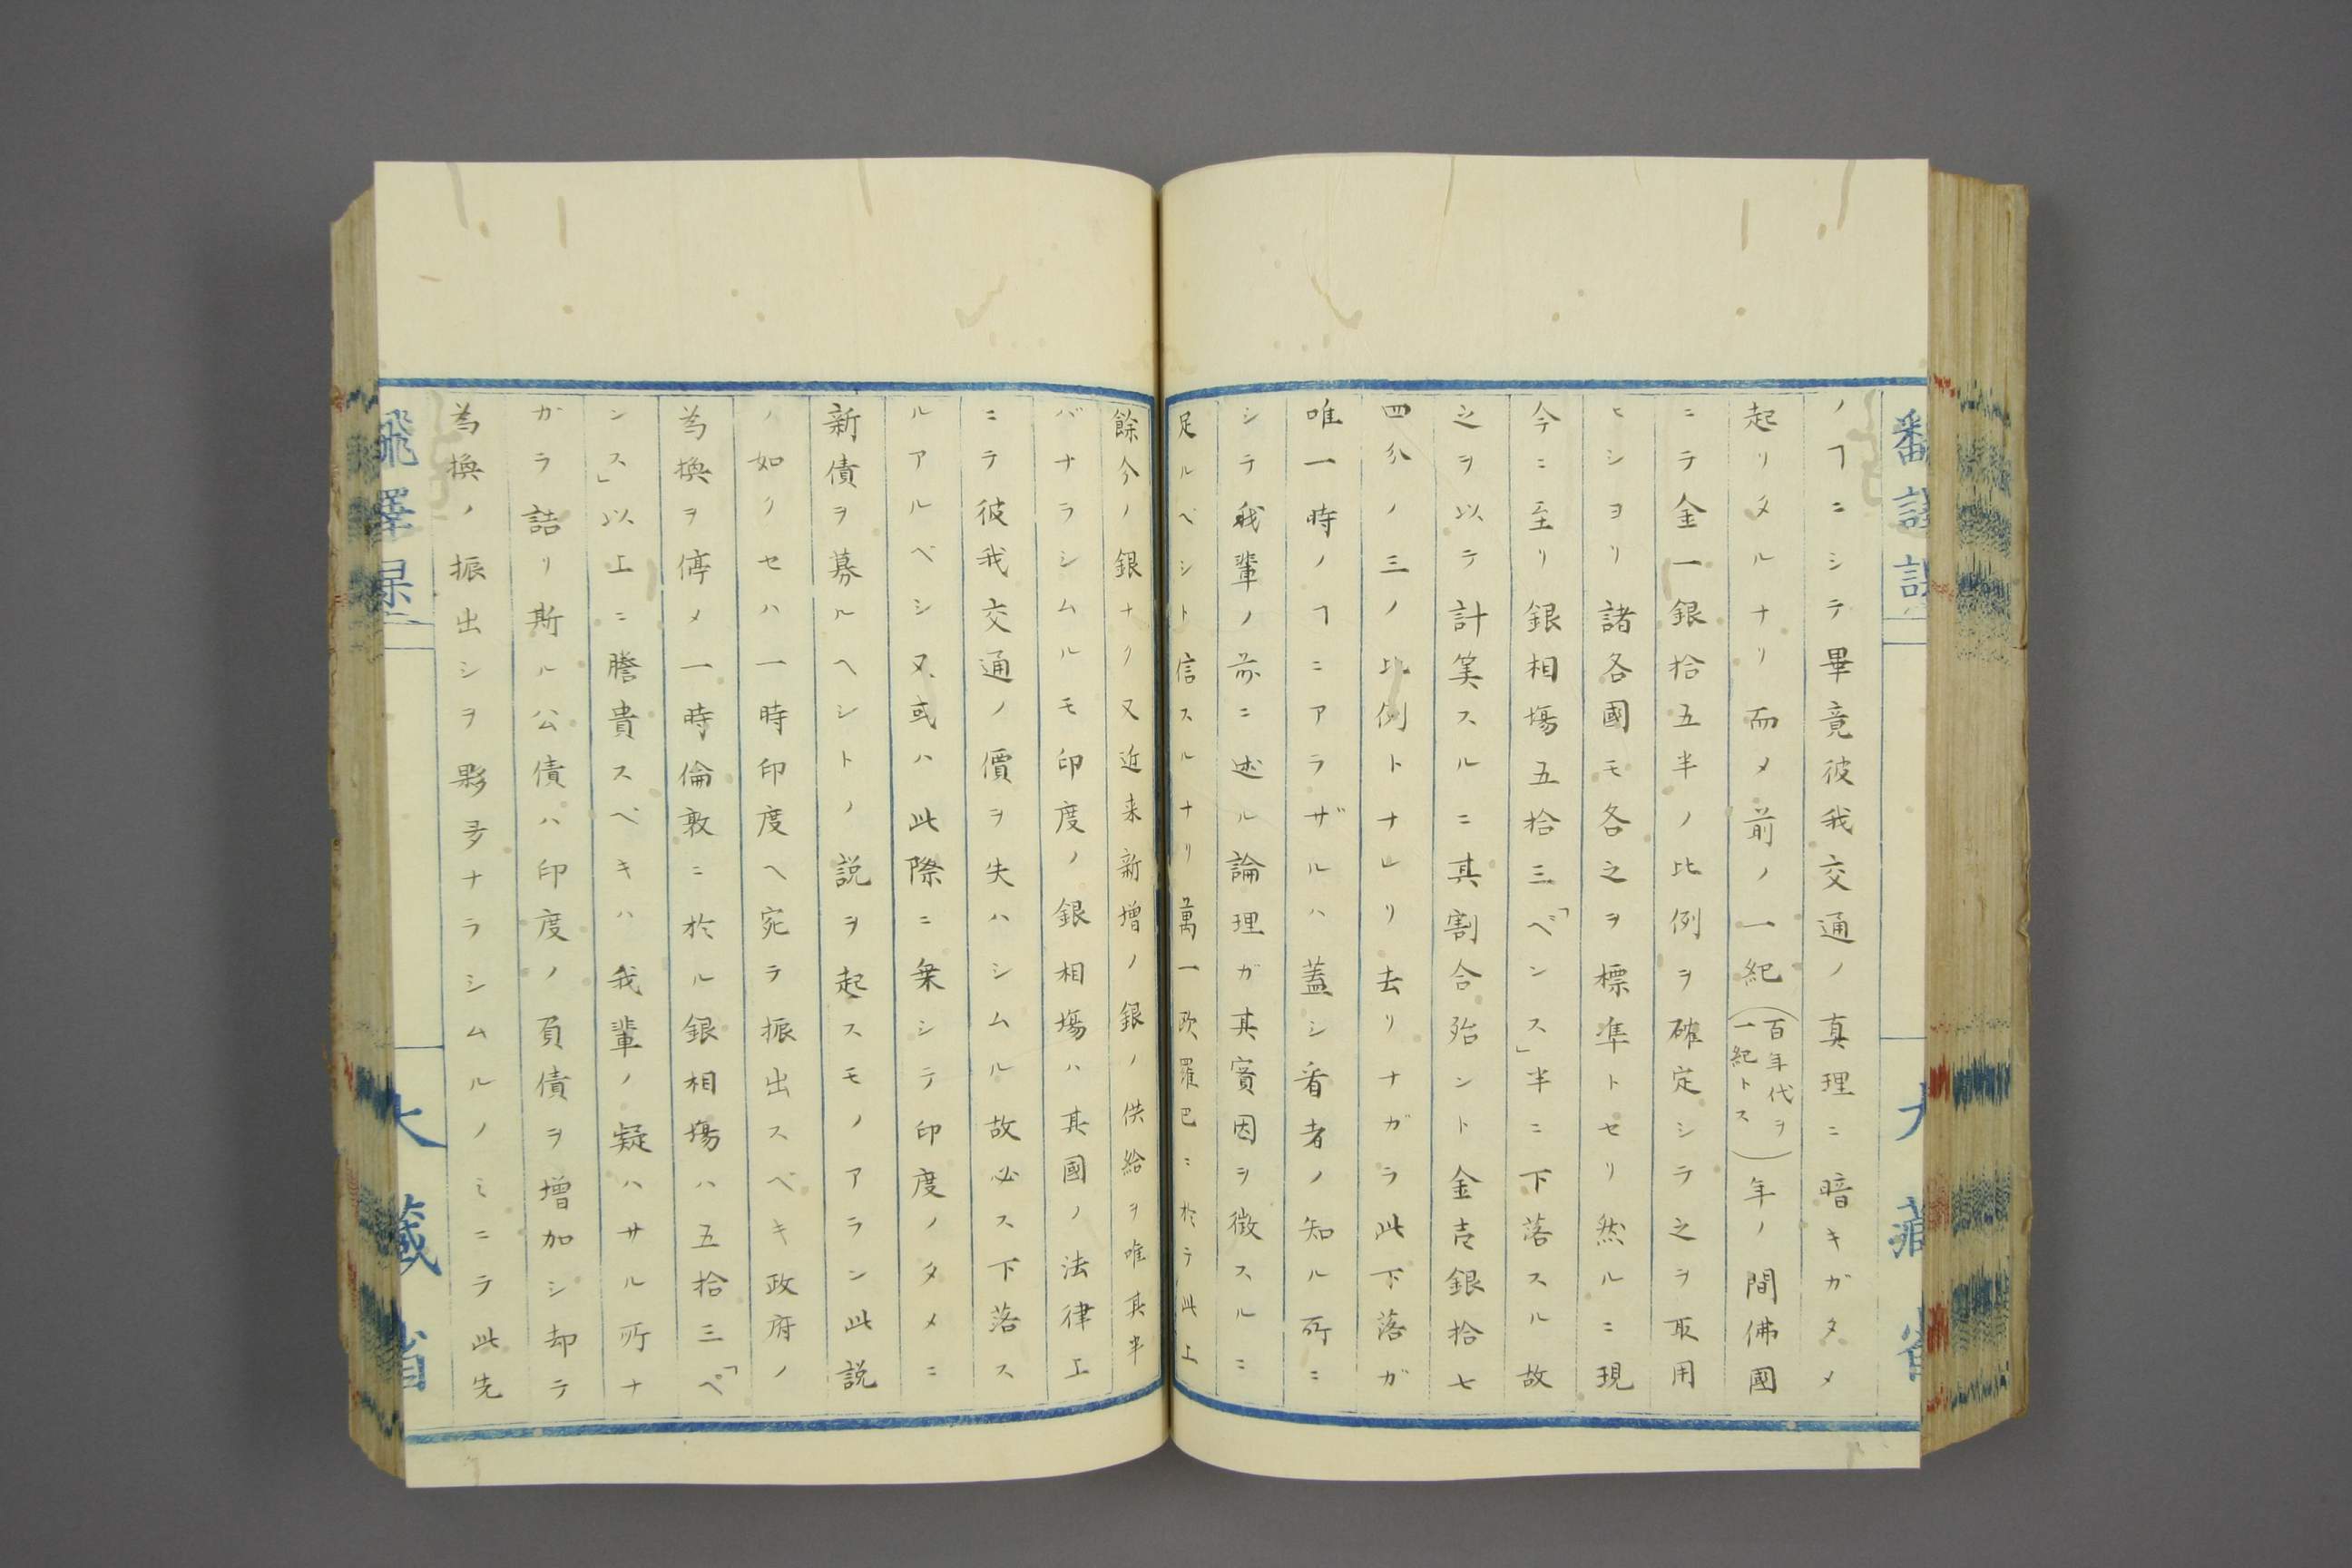 ノヿニシテ畢竟彼我交通ノ真理ニ暗キガタメ
起リタルナリ而メ前ノ一紀(百年代ヲ一紀トス)年ノ間佛國
ニテ金一銀拾五半ノ比例ヲ確定シテ之ヲ取用
セシヨリ諸各國モ各之ヲ標準トセリ然ルニ現
今ニ至リ銀相場五拾三「ペンス」半ニ下落スル故
之ヲ以テ計算スルニ其割合殆ント金壱銀拾七
四分ノ三ノ比例トナレリ去リナガラ此下落ガ
唯一時ノヿニアラザルハ蓋シ看者ノ知ル所ニ
シテ我輩ノ前ニ述ル論理ガ其實因ヲ徴スルニ
足ルベシト信スルナリ萬一欧羅巴ニ於テ此上
餘分ノ銀ナク又近来新增ノ銀ノ供給ヲ唯其半
バナラシムルモ印度ノ銀相場ハ其國ノ法律上
ニテ彼我交通ノ價ヲ失ハシムル故必ス下落ス
ルアルベシ又或ハ此際ニ乗シテ印度ノタメニ
新債ヲ募ルヘシトノ説ヲ起スモノアラン此説
ノ如クセハ一時印度ヘ宛テ振出スベキ政府ノ
為換ヲ停メ一時倫敦ニ於ル銀相場ハ五拾三「ペ
ンス」以上ニ騰貴スベキハ我輩ノ疑ハサル所ナ
ガラ詰リ斯ル公債ハ印度ノ負債ヲ增加シ却テ
為換ノ振出シヲ夥多ナラシムルノミニテ此先
大藏省